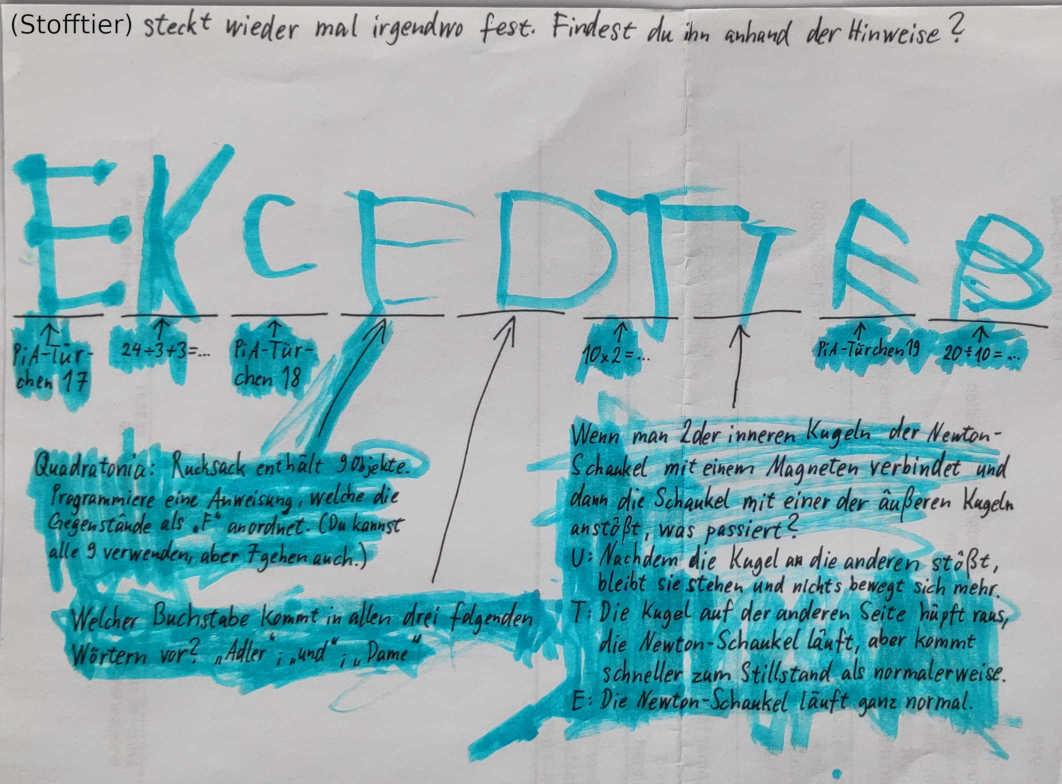 (Stofftier) steckt wieder mal irgendwo fest. Findest du ihn anhand der Hinweise?
E K C E D T T E B
PiA-Tür-
chen 17
24÷3+3=...
PiA-Tür-
chen 18
10x2=...
PiA-Türchen 19
20÷10=...
Quadratonia: Rucksack enthält 9 Objekte.
Programmiere eine Anweisung, welche die
Gegenstände als „F“ anordnet. (Du kannst
alle 9 verwenden, aber 7 gehen auch.)
Welcher Buchstabe kommt in allen drei folgenden
Wörtern vor? „Adler“; „und“; „Dame“
Wenn man 2 der inneren Kugeln der Newton-
Schaukel mit einem Magneten verbindet und
dann die Schaukel mit einer der äußeren Kugeln
anstößt, was passiert?
U: Nachdem die Kugel an die anderen stößt,
bleibt sie stehen und nichts bewegt sich mehr.
T: Die Kugel auf der anderen Seite hüpft raus,
die Newton-Schaukel läuft, aber kommt
schneller zum Stillstand als normalerweise.
E: Die Newton-Schaukel läuft ganz normal.